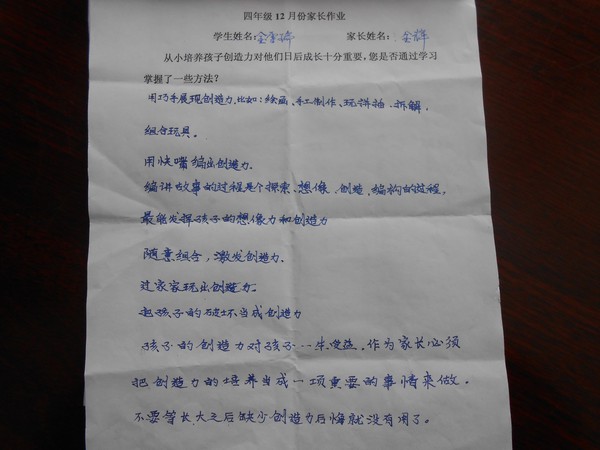 四年级12月份家长作业
学生姓名:金 家长姓名:金辉
从小培养孩子创造力对他们日后成长十分重要,您是否通过学习
掌握了一些方法?
用巧手展现创造力.比如:绘画、手工制作、玩拼插、拆解,
组合玩具。
用快嘴编出创造力。
编讲故事的过程是个探索、想像、创造,编构的过程,
最能发挥孩子的想像力和创造力
随意组合,激发创造力、
过家家玩出创造力。
把孩子的破坏当成创造力
孩子的创造力对孩子一生受益,作为家长必须
把创造力的培养当成一项重要的事情来做。
不要等长大之后缺少创造力后悔就没有用了。